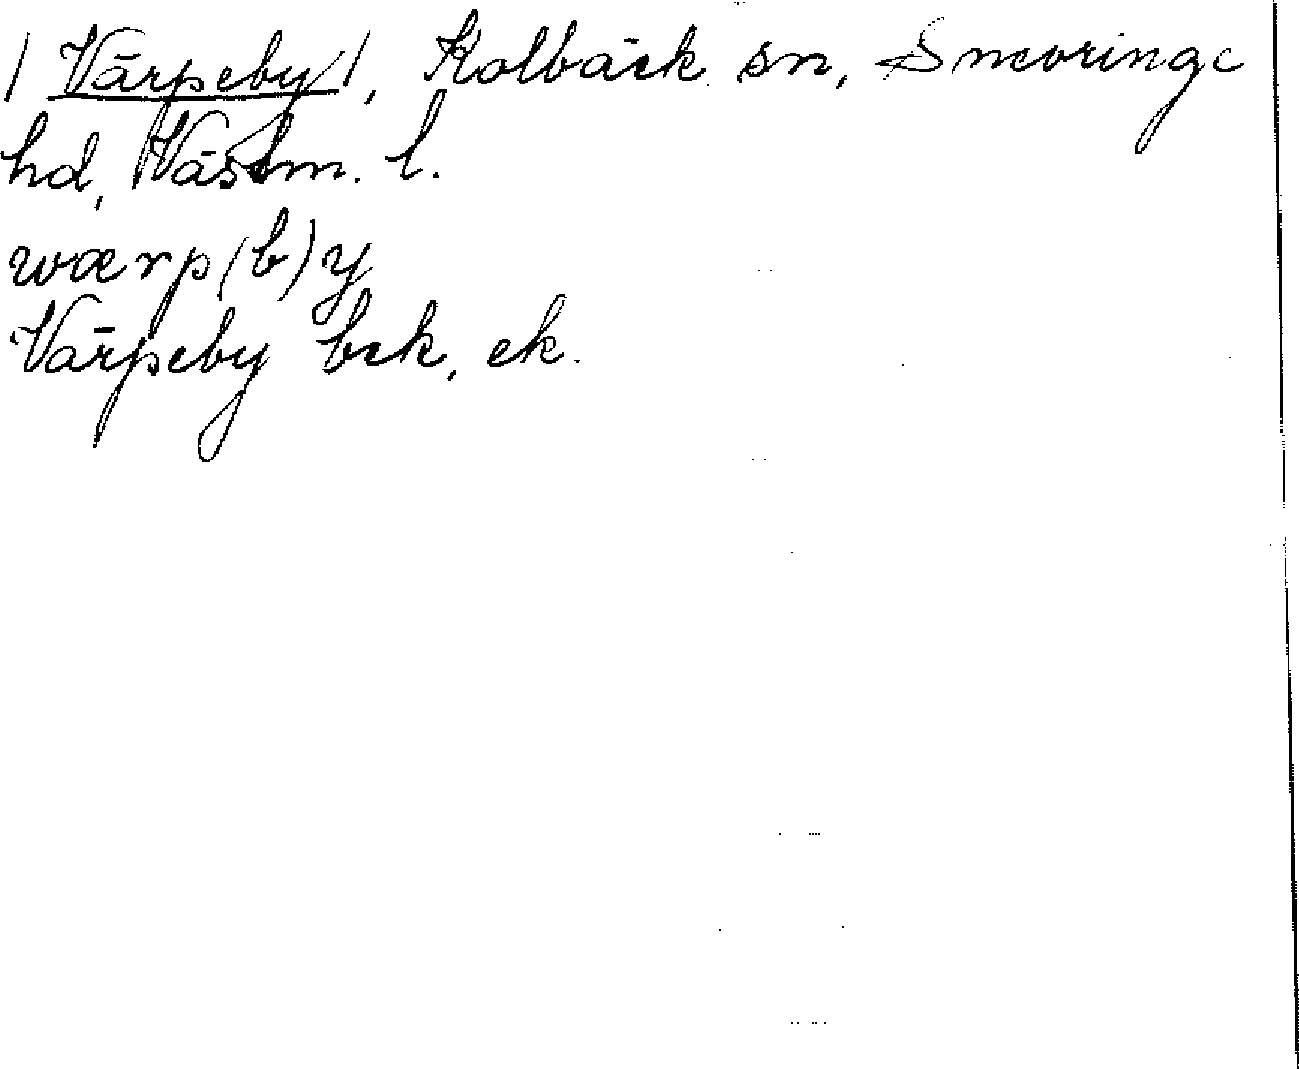 / Värpeby /, Kolbäck sn, Snevringe
hd, Västm. l.
wærp(b)y
Värpeby bek, ek.